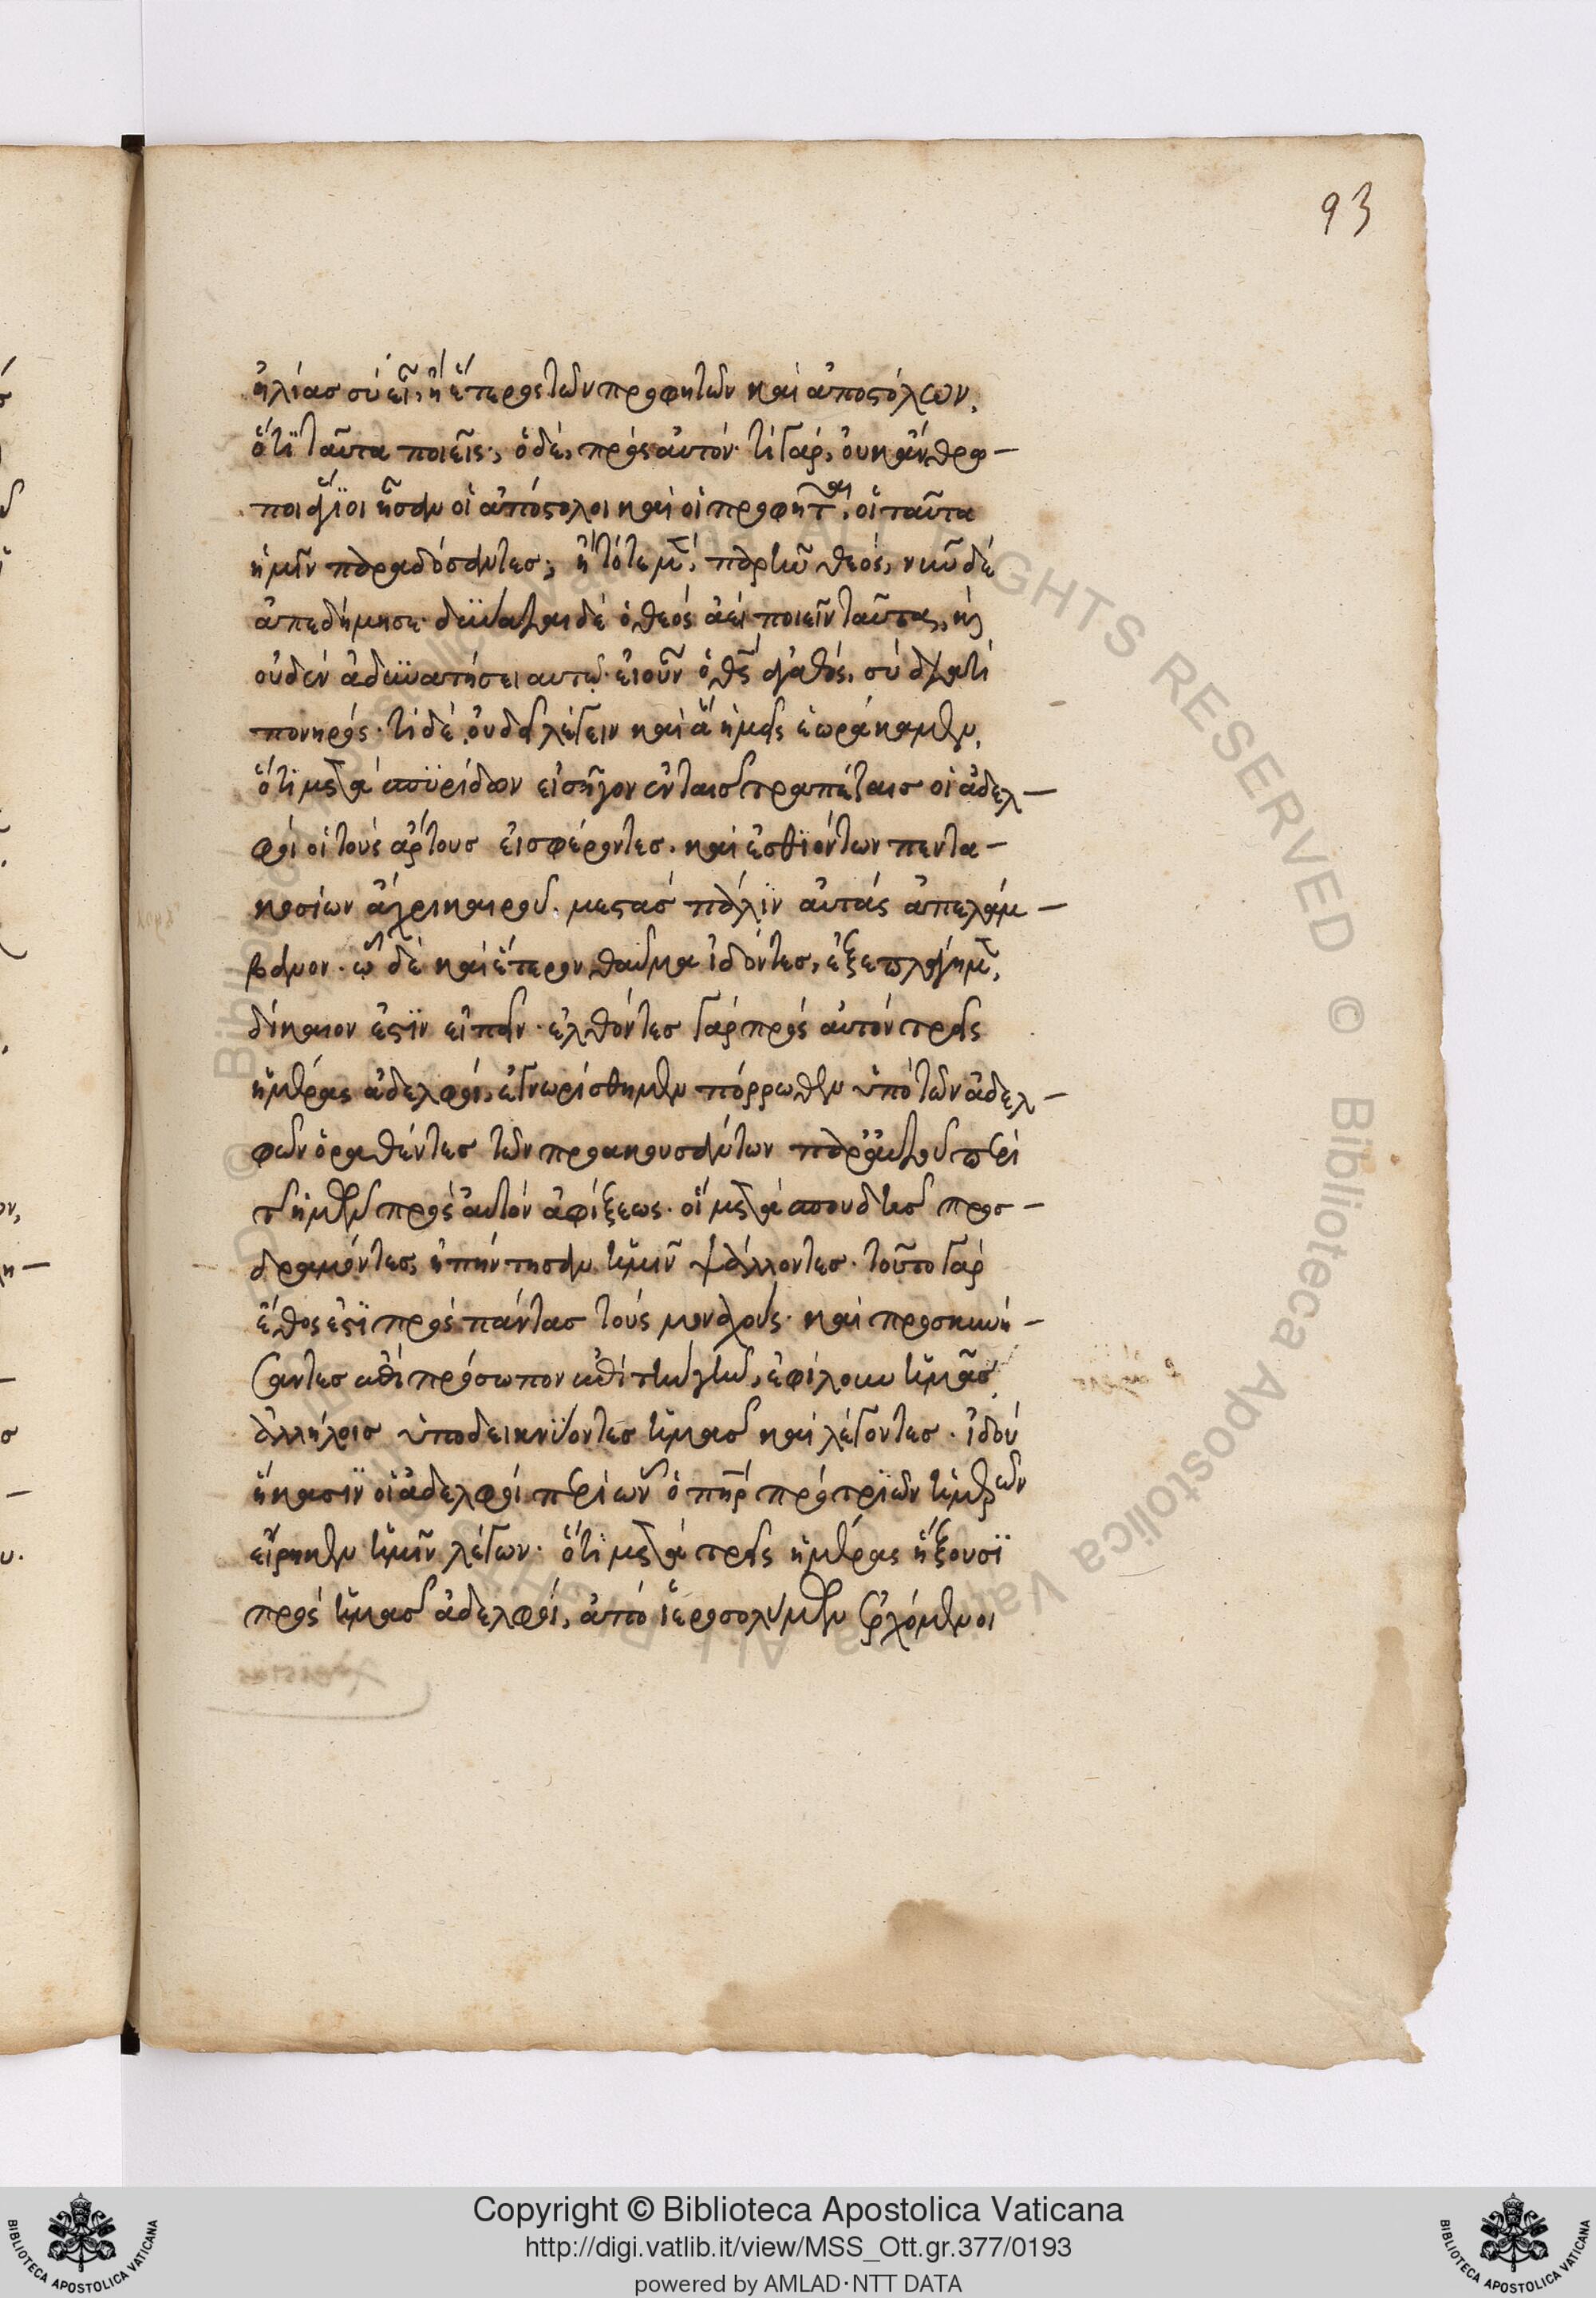 93
ἠλίασ σὺ εἶ, ἢ ἕτεροςτῶνπροφητῶν καὶ ἀποστόλων,
ὅτι ταῦτα ποιεῖς·, ὁδὲ, πρὸςαὐτὸν· τί γὰρ, οὐκἄνθρω–
ποι ἅγιοι ἦσαν οἱ ἀπόστολοι καὶ οἱ προφῆται, οἱ ταῦτα
ἡμῖν παραδόσαντεσ; ἢ τότε μὲν, παρῆν θεὸς, νῦν δὲ
ἀπεδήμησε· δύναται δὲ ὁ θεὸς ἀεὶ ποιεῖν ταῦτα, καὶ
οὐδὲν ἀδυνατήσει αυτῷ· εἰοῦν ὁ θεὸς ἀγαθὸς, σὺ διατί
πονηρός· τί δὲ οὐ δεῖ λέγειν καὶ ἃ ἡμεῖς ἑωράκαμεν,
ὅτι μετὰ σπυρίδων εἰσῆγον ἐν ταισ τραπέζαισ οἱ ἀδελ–
φοὶ οἱ τοὺς ἄρτουσ εἰσφέροντεσ· καὶ ἐσθιόντων πεντα–
κοσίων ἄχρι κόρου· μεστὰσ πάλιν αὐτὰς ἀπελάμ–
βανον· ὃ δὲ καὶ ἕτερον θαῦμα ἰδόντεσ, ἐξεπλάγημεν,
δίκαιον ἐστὶν εἰπεῖν· ἐλθόντεσ γὰρ πρὸς αὐτὸν τρεῖς
ἡμέρας ἀδελφοὶ, ἐγνωρίσθημεν πόρρωθεν ὑπὸ τῶν ἀδελ–
φῶν ὁραθέντεσ τῶν προακουσάντων παρ' αὐτοῦ περὶ
τῆς ἡμῶν πρὸς αὐτὸν ἀφίξεως· οἳ μετὰ σπουδῆσ προσ–
δραμόντεσ, ὑπήντησαν ἡμῖν ψάλλοντεσ· τοῦτο γὰρ
ἔθος ἐστὶ πρὸς πάντασ τοὺς μοναχούς· καὶ προσκυνή–
σαντεσ ἐπὶ πρόσωπον ἐπὶ τὴν γῆν, ἐφίλουν ἡμᾶσ
ἀλλήλοισ ὑποδεικνύοντεσ ἡμᾶσ καὶ λέγοντεσ· ἰδοὺ
ἥκασιν οἱ ἀδελφοὶ περὶ ὧν ὁ πατὴρ πρὸ τριῶν ἡμερῶν
εἴρηκεν ἡμῖν λέγων· ὅτι μετὰ τρεῖς ἡμέρας ἥξουσι
πρὸς ἡμᾶσ ἀδελφοὶ, ἀπὸ ἱεροσολύμων ἐρχόμενοι
Copyright © Biblioteca Apostolica Vaticana
http://digi.vatlib.it/view/MSS_Ott.gr.377/0193
powered by AMLAD·NTT DATA